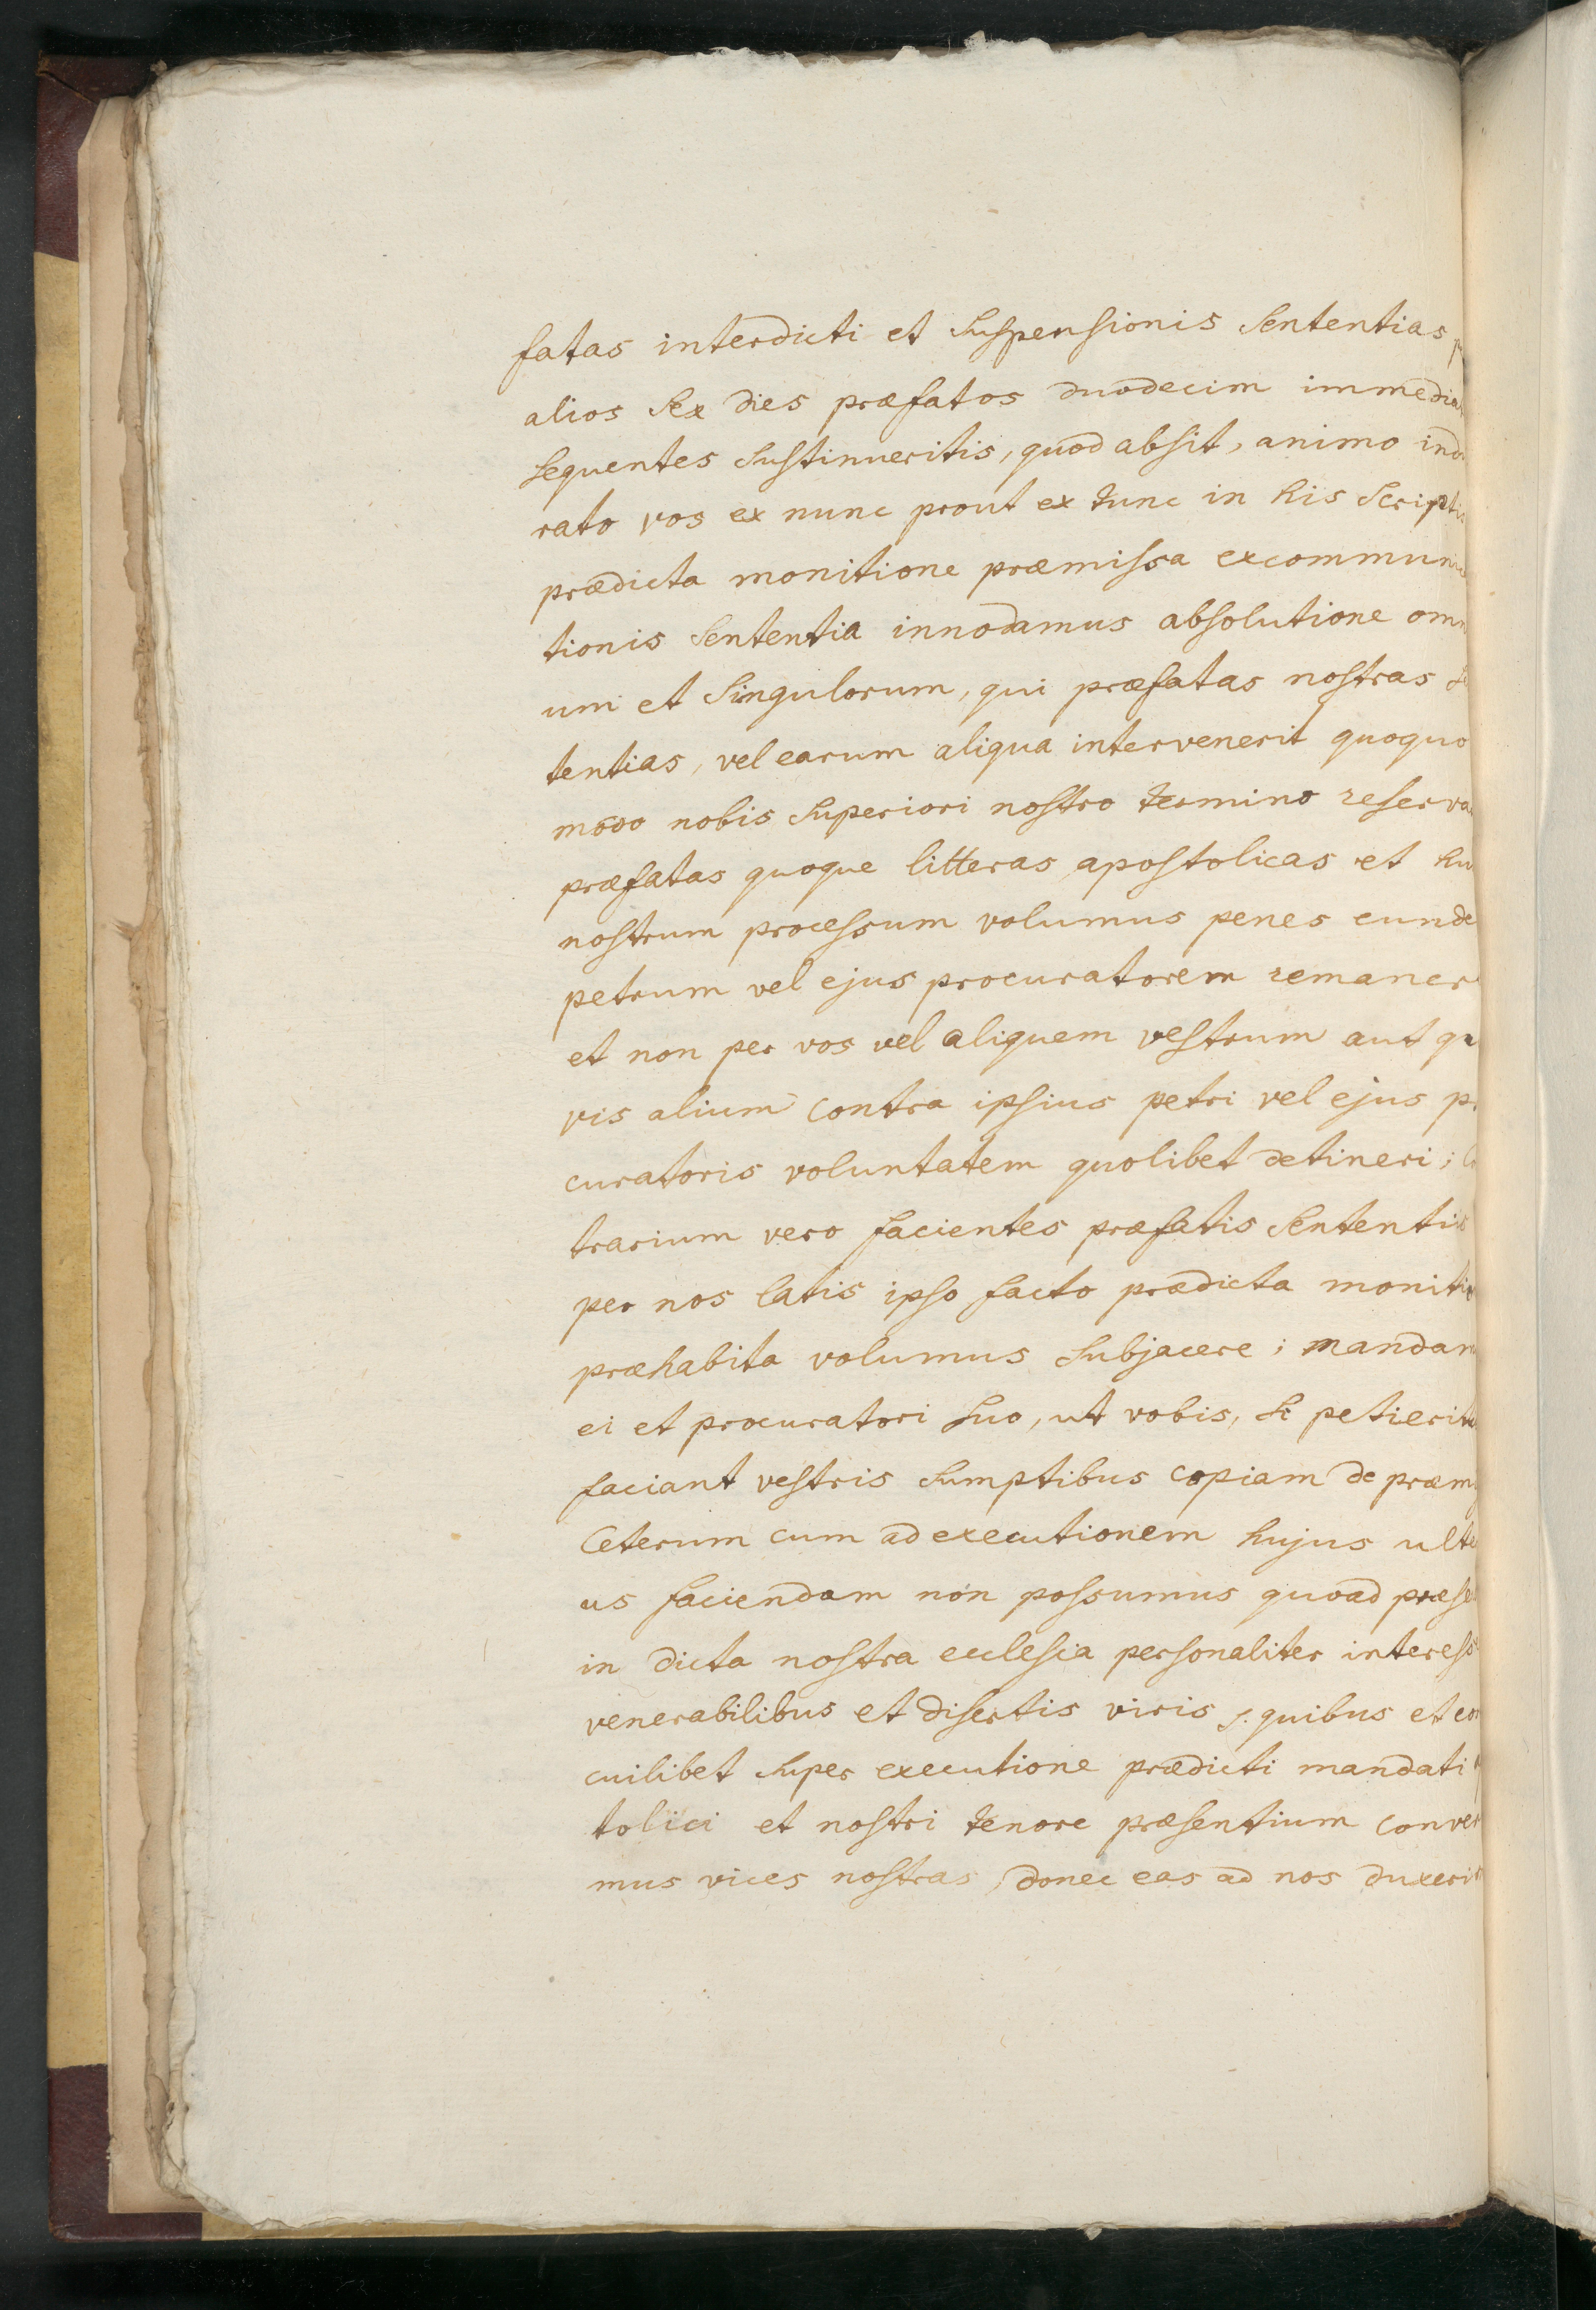 fatas interdicti et suspensionis sententias
alios sex dies præfatos duodecim immedia
sequentes sustinueritis, quod absit, animo ind
rato vos ex nunc prout ex tunc in his scriptis
prædicta monitione præmissa excommuni
tionis sententia innodamus absolutione omn
um et singulorum, qui præfatas nostras
tentias, vel earum aliqua intervenerit quoquo
modo nobis superiori nostro termino reserva
præfatas quoque litteras apostolicas et hu
nostrum processum volumus penes eunde
petrum vel ejus procuratorem remaner
et non per vos vel aliquem vestrum aut qu
vis alium contra ipsius petri vel ejus p
curatoris voluntatem quolibet detineri;
trarium vero facientes præfatis sententiis
per nos latis ipso facto prædicta moniti
præhabita volumus subjacere; mandam
ei et procuratori suo, ut vobis, si petierit
faciant vestris sumptibus copiam de præm
Ceterum cum ad executionem hujus ulte
us faciendam non possumus quoad præse
in dicta nostra ecclesia personaliter interess
venerabilibus et disertis viris s. quibus et eo
cuilibet super executione prædicti mandati
tolici et nostri tenore præsentium conver
mus vices nostras, donec eas ad nos duxeri